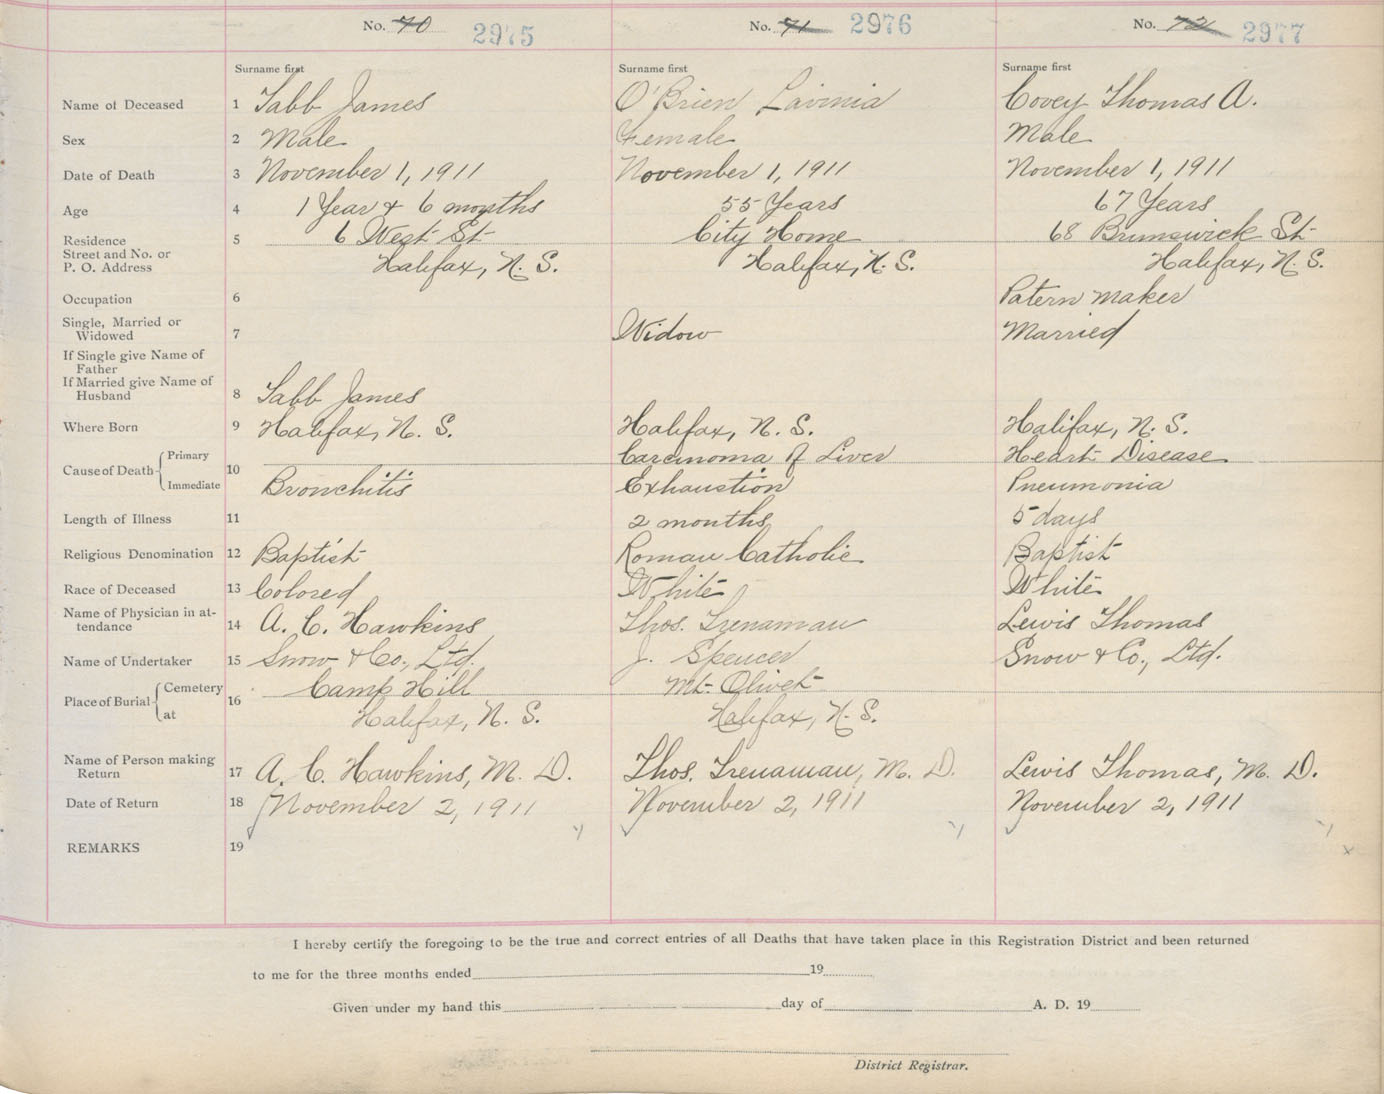 No. 70 2975 No. 71 2976 No. 72 2977
Surname first Surname first Surname first
Name of Deceased 1 Tabb James O'Brien Lavinia Covey Thomas A.
Sex 2 Male Female Male
Date of Death 3 November 1, 1911 November 1, 1911 November 1, 1911
Age 4 1 Year & 6 months 55 Years 67 Years
Residence 5 6 West St City Home 68 Brunswick St
Street and No. or
P. O. Address Halifax, N. S. Halifax, N. S. Halifax, N. S.
Occupation 6 Patern maker
Single, Married or
Widowed 7 Widow Married
If Single give Name of
Father
If Married give Name of
Husband 8 Tabb James
Where Born 9 Halifax, N. S. Halifax, N. S. Halifax, N. S.
Cause of Death Primary 10 Carcinoma of Liver Heart Disease
Immediate Bronchitis Exhaustion Pneumonia
Length of Illness 11 2 months 5 days
Religious Denomination 12 Baptist Roman Catholic Baptist
Race of Deceased 13 Colored White White
Name of Physician in at-
tendance 14 A. C. Hawkins Thos. Trenaman Lewis Thomas
Name of Undertaker 15 Snow & Co., Ltd. J. Spencer Snow & Co., Ltd.
Place of Burial Cemetery 16 Camp Hill Mt. Olivet
at Halifax, N. S. Halifax, N. S.
Name of Person making
Return 17 A. C. Hawkins, M. D. Thos. Trenaman, M. D. Lewis Thomas, M. D.
Date of Return 18 November 2, 1911 November 2, 1911 November 2, 1911
REMARKS 19
I hereby certify the foregoing to be the true and correct entries of all Deaths that have taken place in this Registration District and been returned
to me for the three months ended 19
Given under my hand this day of A. D. 19
District Registrar.